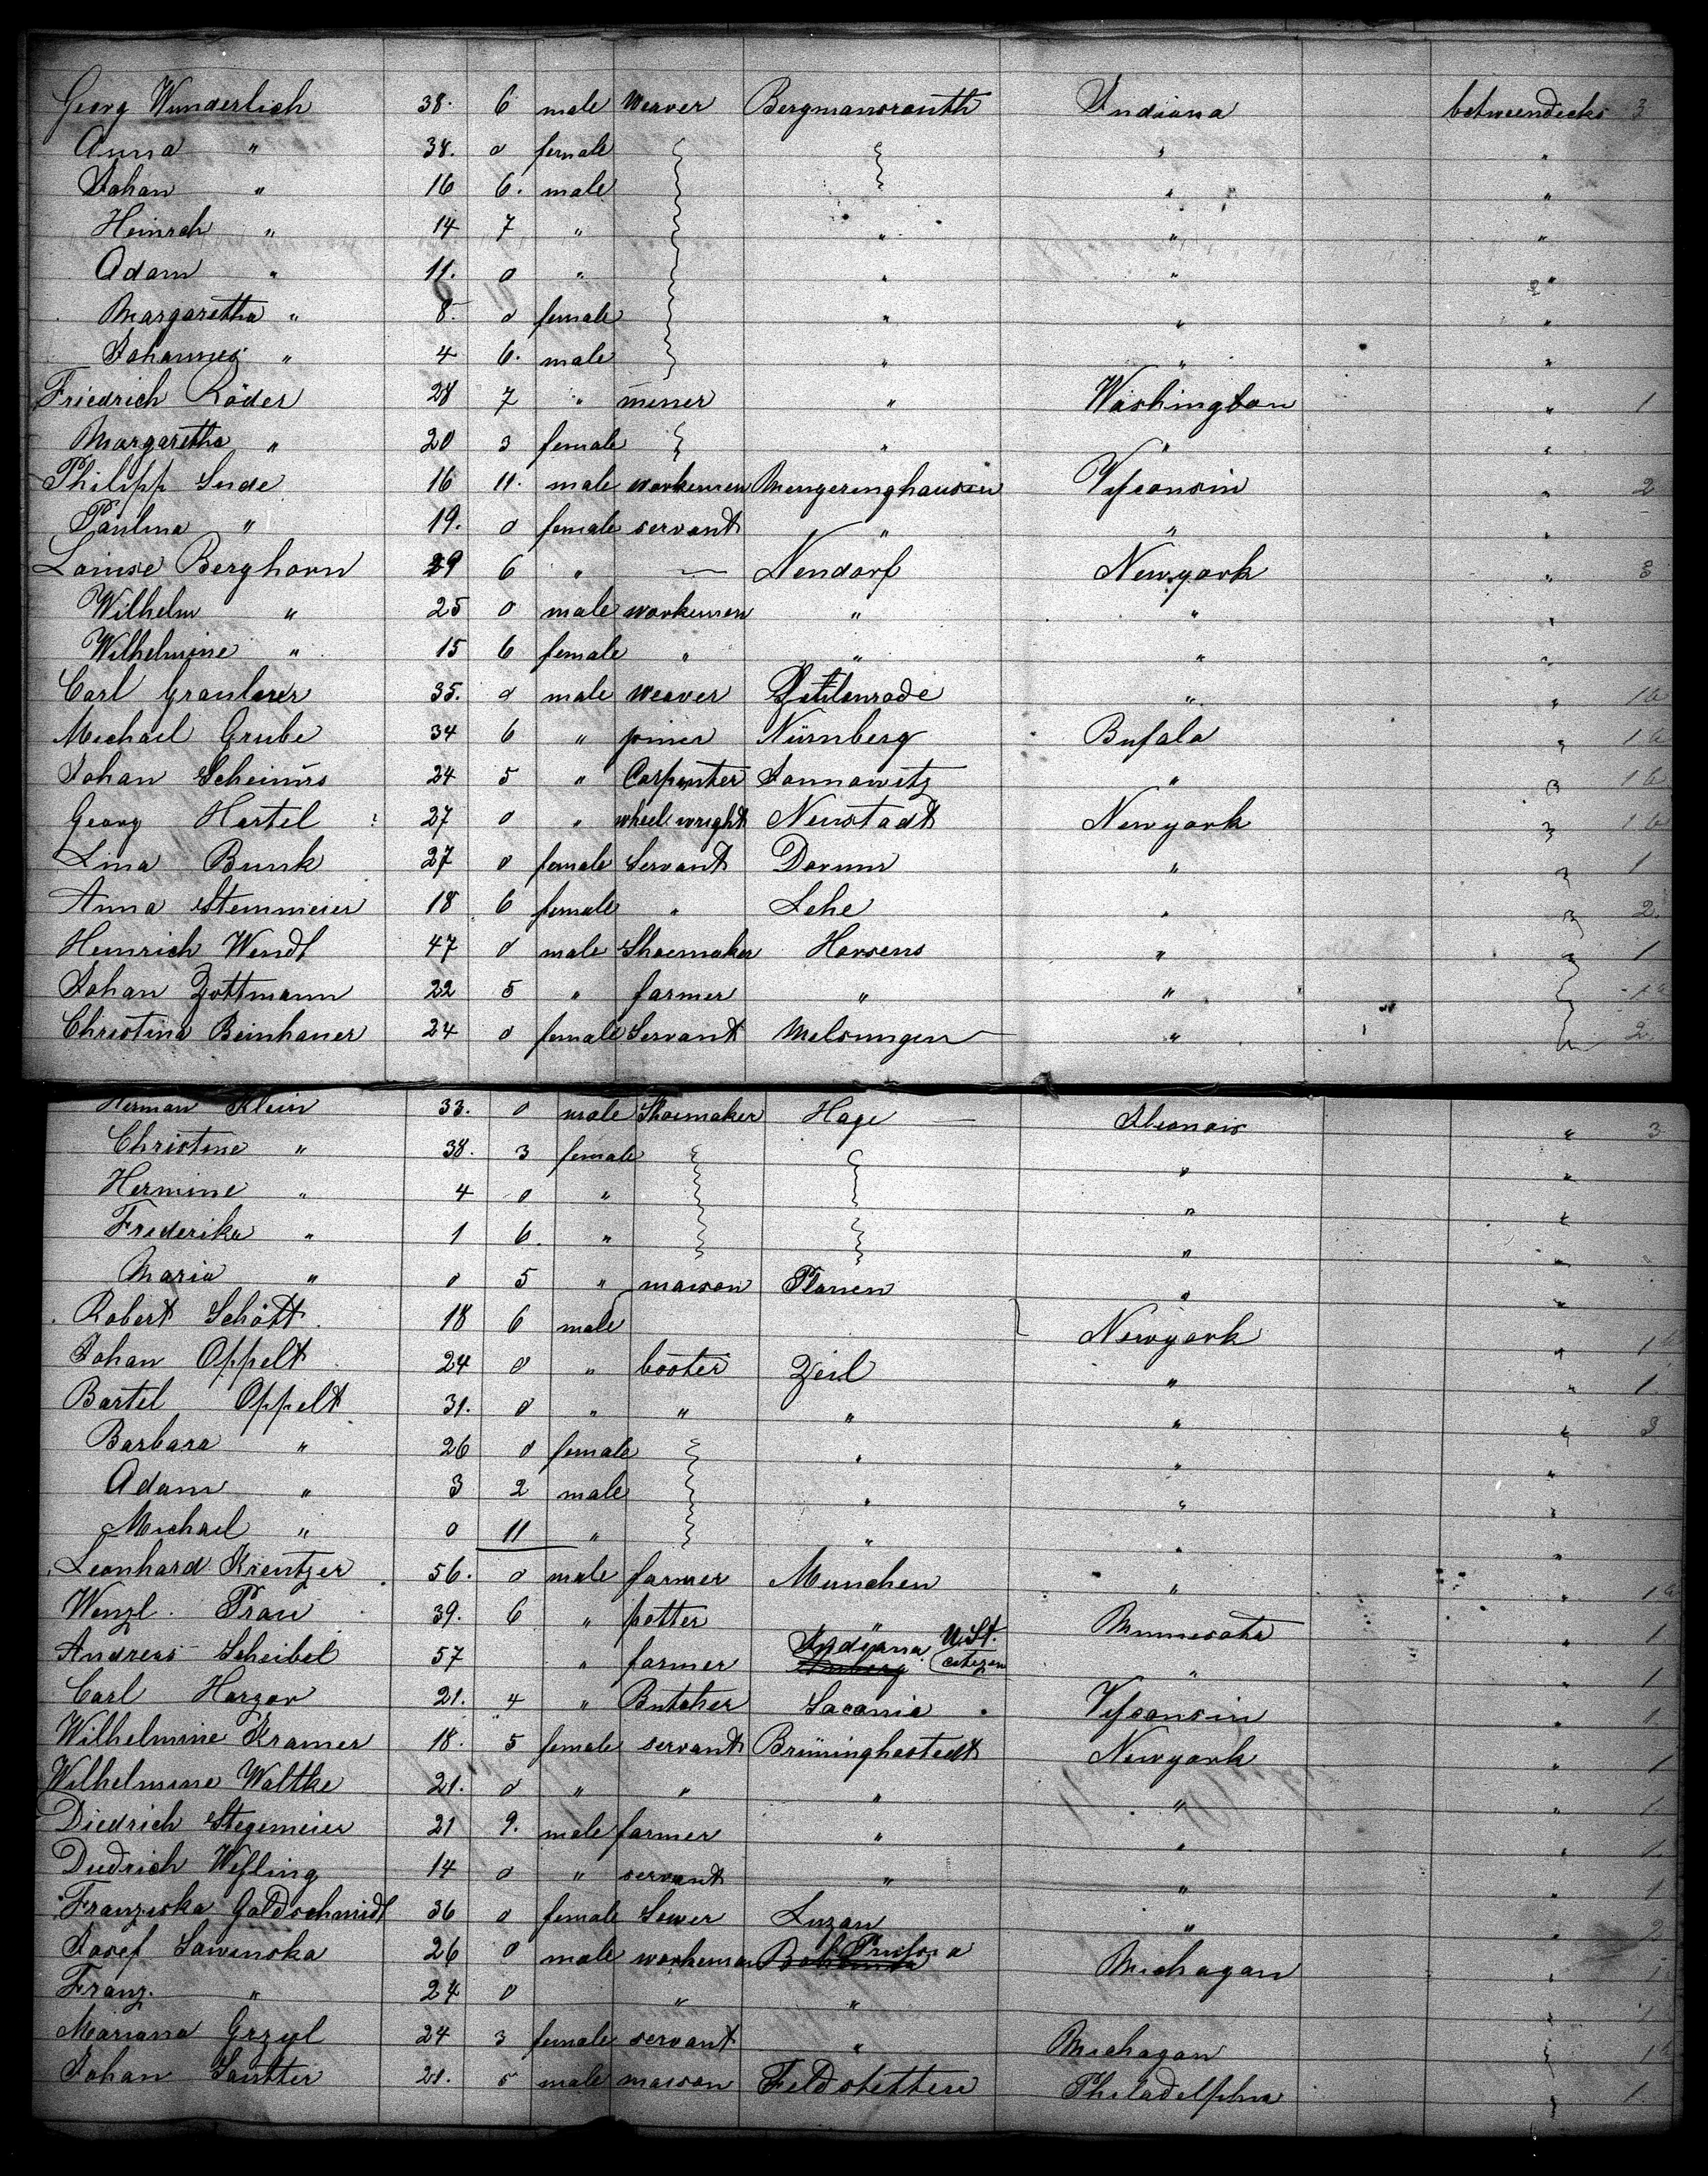 Georg Wunderlich 38. 6 male weaver Bergmansreuth Indiana betweendecks 3
Anna " 38. 0 female " "
Johan " 16 6. male " "
Heinrch " 14 7 " " " "
Adam " 11. 0 " " " "
Margaretha " 8. 0 female " " "
Johannes " 4 6. male " " "
Friedrich Röder 28 7 " miner " Washington " 1
Margaretha " 20 3 female " " "
Philipp Sude 16 11. male workemen Mengeringhausen Visconsin " 2
Paulina " 19. 0 female servant " " "
Louise Berghorn 29 6 " — Nendorf Newyork " 3
Wilhelm " 25 0 male workemen " " "
Wilhelmine " 15 6 female " " " "
Carl 35. 0 male weaver " "
Michael Grube 34 6 " joiner Nürnberg Bufalo "
Johan 24 5 " Carpenter Jannowitz "
Georg Hertel 27 0 " wheelwright Neustadt Newyork
Lina Bunk 27 0 female Servant Dorum " 1
Anna Stemmeier 18 6 female " Lehe " 2.
Heinrich Wendt 47 0 male Shoemaker Horsens " 1
Johan Zottmann 22 5 " farmer " "
Christina Beinhauer 24 0 female Servant Melsungen " 2.
Herman Klein 33. 0 male Shoemaker Hage — Ileonois " 3
Christine " 38. 3 female " "
Hermine " 4 0 " " "
Frederika " 1 6. " " "
Maria " 0 5 " mason Planen " "
Robert Schött 18 6 male Newyork " 1
Johan Oppelt 24 0 " booter Zeil " " 1
Bartel Oppelt 31. 0 " " " " " 3
Barbara " 26 0 female " " "
Adam " 3 2 male " " "
Michael " 0 11 " " " "
Leonhard Kreutzer 56. 0 male farmer Munchen " "
Wenzl. Prau 39. 6 " potter " Minnesota " 1
Andreas Scheibel 57 " farmer Indiana U. St. citizen " " 1
Carl Harzor 21. 4 " Butcher Saconie Visconsin " 1
Wilhelmine Kramer 18. 5 female servant Brüninghestedt Newyork " 1
Wilhelmine Waltke 21. 0 " " " " " 1
Diedrich Stegemeier 21 9. male farmer " " " 1.
Diedrich Wesling 14 0 " servant " " " 1
Franziska Goldschmidt 36 0 female Sewer Luzan " " 2
Josef Sawinska 26 0 male workeman Prussia Michagan "
Franz. " 24 0 " "
Mariana Grzyl 24 3 female servant " Michagan
Johan Sautter 21. 5 male mason Feldstetten Philadelphia 1.